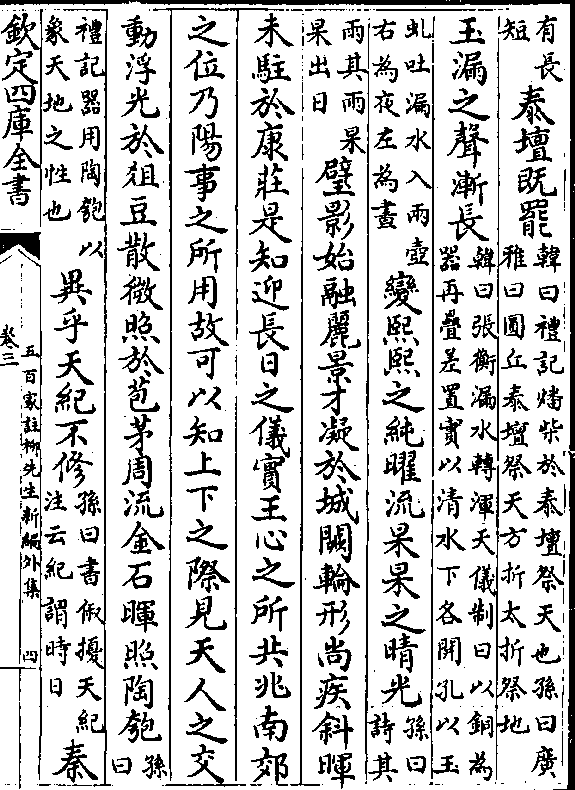 有長
短
泰壇既罷
韓曰禮記燔柴於泰壇祭天也孫曰廣
雅曰圓丘泰壇祭天方折太折祭地
玉漏之聲漸長
韓曰張衡漏水轉渾天儀制曰以銅為
器再疊差置實以清水下各開孔以玉
虬吐漏水入兩壺
右為夜左為晝
變熙熙之純曜流杲杲之晴光
孫曰
詩其
雨其雨杲
杲出日
璧影始融麗景才凝於城闕輪形尚疾斜暉
未駐於康莊是知迎長日之儀實王心之所共兆南郊
之位乃陽事之所用故可以知上下之際見天人之交
動浮光於俎豆散微照於苞茅周流金石暉照陶匏
孫
曰
禮記器用陶匏以
象天地之性也
異乎天紀不修
孫曰書俶擾天紀
注云紀謂時日
秦
欽定四庫全書
卷三
五百家註柳先生新編外集
四